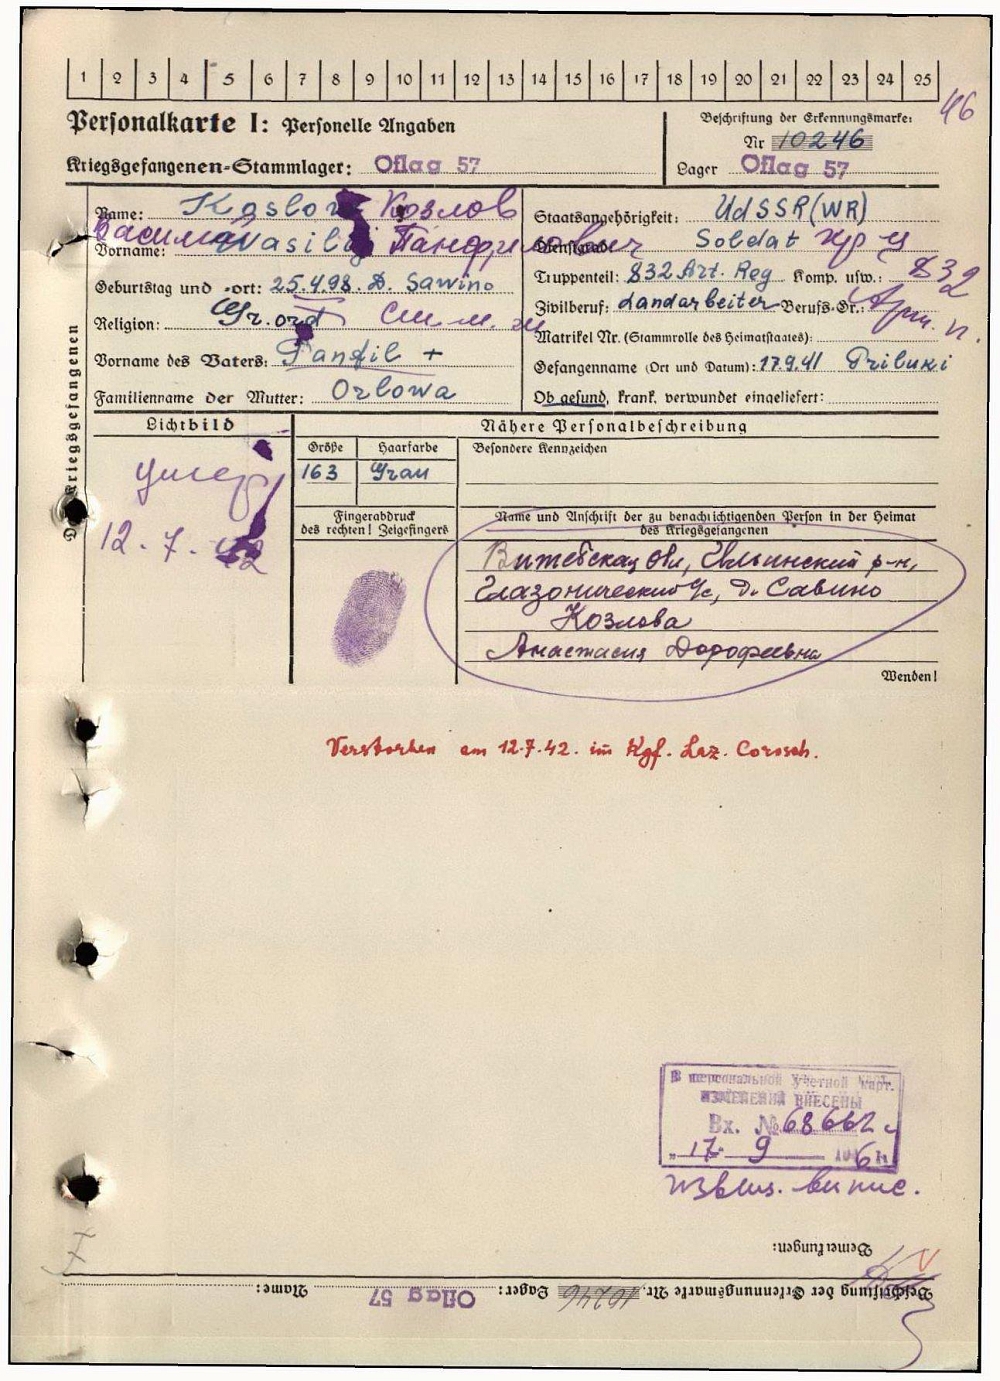 1 2 3 4 5 6 7 8 9 10 11 12 13 14 15 16 17 18 19 20 21 22 23 24 25
46
Personalkarte I: Personelle Angaben
Beschriftung der Erkennungsmarke:
Nr 10246
Kriegsgefangenen-Stammlager: Oflag 57
Lager Oflag 57
Des Kriegsgefangenen
Name: Koslow Козлов
Василий Панфилович
Vorname: Wasilij
Geburtstag und -ort: 25.4.98. D. Sawino
Religion: Gr. ord
Vorname des Vaters: Panfil +
Familienname der Mutter: Orlowa
Staatsangehörigkeit: UdSSR (WR)
Dienstgrad: Soldat кр-ц
Truppenteil: 832 Art. Reg Komp. usw.: 832
Zivilberuf: Landarbeiter Berufs-Gr.: Арт. п.
Matrikel Nr. (Stammrolle des Heimatstaates):
Gefangenname (Ort und Datum): 17.9.41 Priluki
Ob gesund, krank, verwundet eingeliefert:
Lichtbild
умер
12.7.42
Nähere Personalbeschreibung
Größe Haarfarbe Besondere Kennzeichen
163 Grau
Fingerabdruck
des rechten! Zeigefingers
Name und Anschrift der zu benachrichtigenden Person in der Heimat
des Kriegsgefangenen
Витебская обл, Ильинский р-н,
Глазонический с/с, д. Савино
Козлова
Анастасия Дорофеевна
Wenden!
Verstorben am 12.7.42. im Kgf. Laz. Corosch.
В персональной учетной карт.
ИЗМЕНЕНИЯ ВНЕСЕНЫ
Вх. № 68662 с
„17" 9 1946 г.
извещ. выпис.
Bemerkungen:
Beschriftung der Erkennungsmarke Nr. 10246 Lager: Oflag 57 Name: